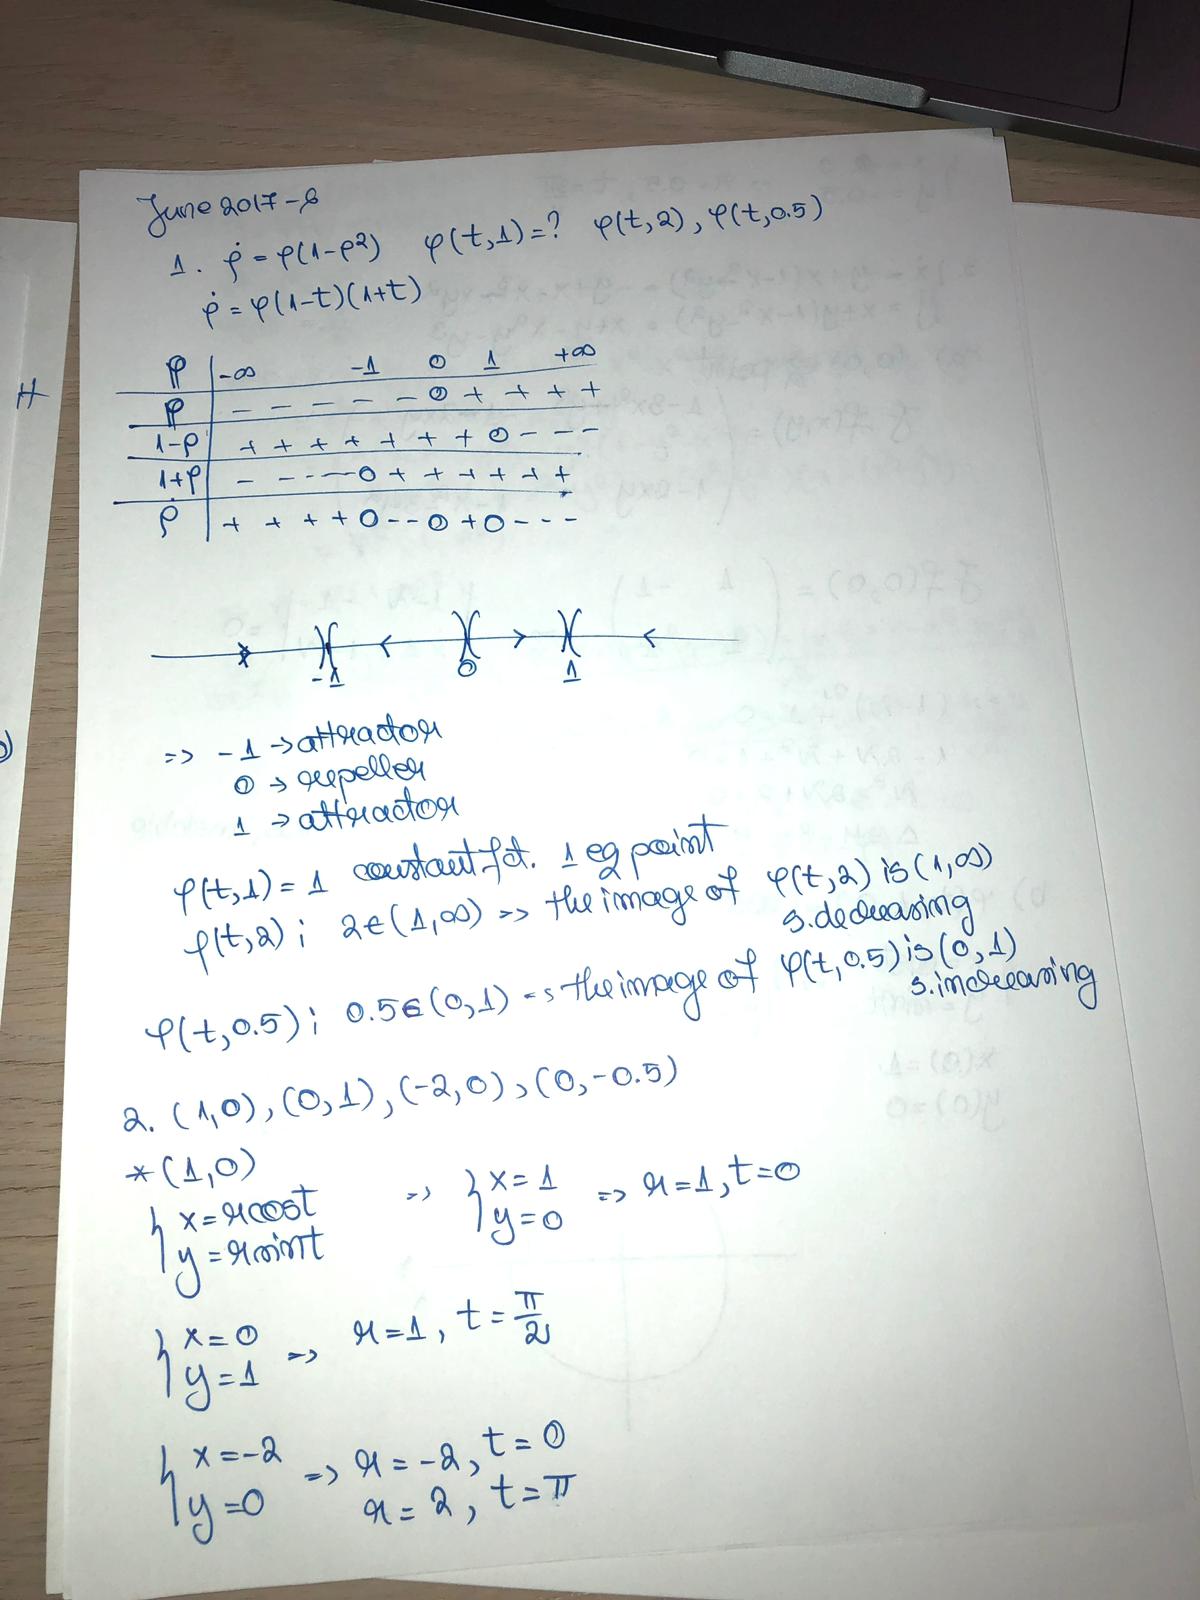 June 2017-8
1. ρ̇ = ρ(1-ρ²) φ(t,1)=? φ(t,2), φ(t,0.5)
ρ̇ = φ(1-t)(1+t)
ρ | -∞ -1 0 1 +∞
ρ | - - - - - 0 + + + +
1-ρ | + + + + + + + 0 - - -
1+ρ | - - - - - 0 + + + + + +
ρ̇ | + + + + 0 - - 0 + 0 - - -
-1 0 1
=> -1 → attractor
0 → repeller
1 → attractor
φ(t,1) = 1 constant fct. 1 eq point
φ(t,2) ; 2∈(1,∞) => the image of φ(t,2) is (1,∞)
s.decreasing
φ(t,0.5) ; 0.5∈(0,1) => the image of φ(t,0.5) is (0,1)
s.increasing
2. (1,0), (0,1), (-2,0), (0,-0.5)
*(1,0)
{ x = r cos t => { x = 1 => r = 1, t = 0
y = r sin t y = 0
{ x = 0 => r = 1, t = π/2
y = 1
{ x = -2 => r = -2, t = 0
y = 0 r = 2, t = π
H